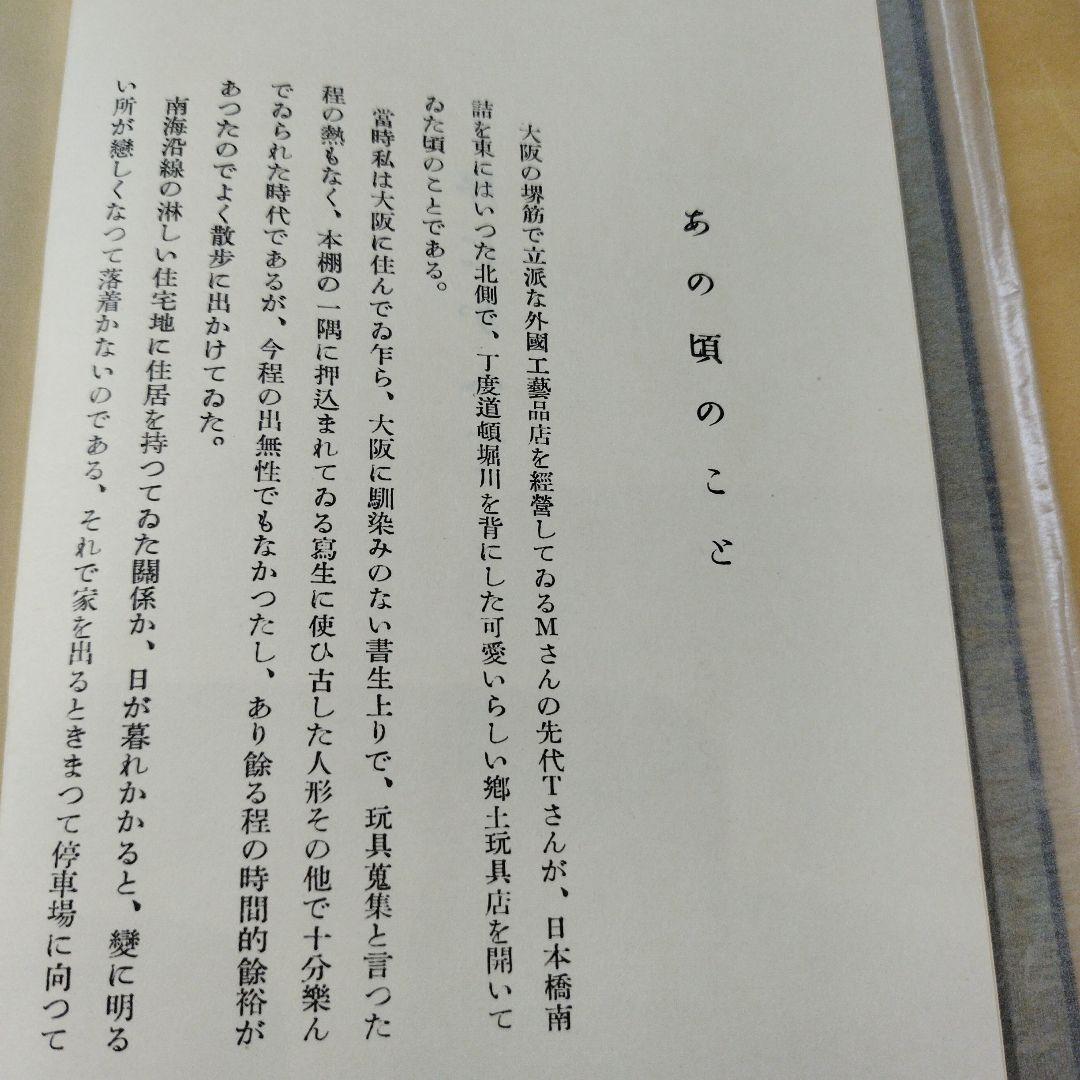 あの頃のこと
大阪の堺筋で立派な外國工藝品店を經營してゐるMさんの先代Tさんが、日本橋南
詰を東にはいつた北側で、丁度道頓堀川を背にした可愛いらしい鄕土玩具店を開いて
ゐた頃のことである。
當時私は大阪に住んでゐ乍ら、大阪に馴染みのない書生上りで、玩具蒐集と言つた
程の熱もなく、本棚の一隅に押込まれてゐる寫生に使ひ古した人形その他で十分樂ん
でゐられた時代であるが、今程の出無性でもなかつたし、あり餘る程の時間的餘裕が
あつたのでよく散步に出かけてゐた。
南海沿線の淋しい住宅地に住居を持つてゐた關係か、日が暮れかかると、變に明る
い所が戀しくなつて落着かないのである、それで家を出るときまつて停車場に向つて